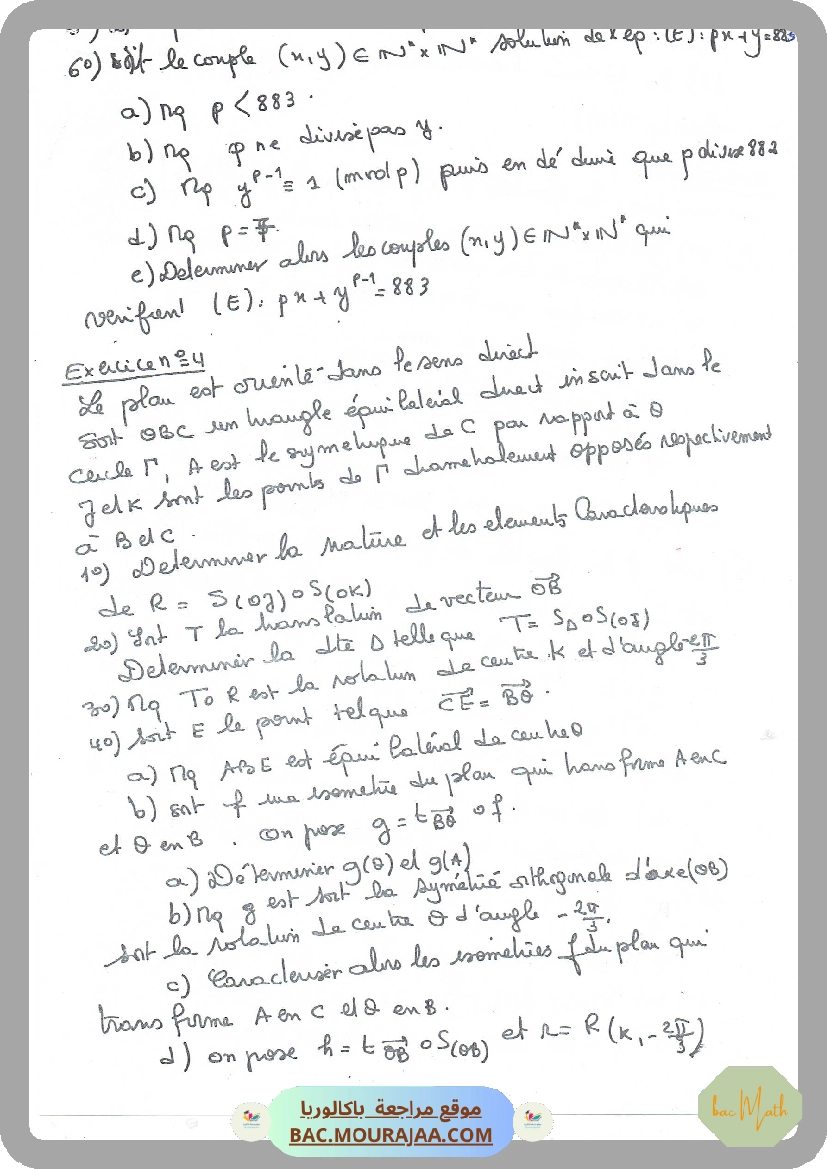 6°) soit le couple (x,y) ∈ IN* x IN* solution de l'ep : (E) : px + y = 883
a) Mq p < 883.
b) Mq p ne divise pas y.
c) Mq y^{p-1} ≡ 1 (mod p) puis en déduire que p divise 882
d) Mq p = 7.
e) Determiner alors les couples (x,y) ∈ IN* x IN* qui
verifient (E) : px + y^{p-1} = 883
Exercice n°4
Le plan est orienté dans le sens direct
Soit OBC un triangle équilatéral direct inscrit dans le
cercle Γ, A est le symetrique de C par rapport à O
J et K sont les points de Γ diametralement opposés respectivement
à B et C.
1°) Determiner la nature et les elements Caracteristiques
de R = S(OJ) o S(OK)
2°) Soit T la translation de vecteur OB
Determiner la dte Δ telle que T = S_Δ o S(OJ)
3°) Mq T o R est la rotation de centre K et d'angle -2π/3
4°) Soit E le point tel que CE = BO.
a) Mq ABE est équilatéral de centre O
b) soit f une isometrie du plan qui transforme A en C
et O en B. On pose g = t_{BO} o f.
a) Déterminer g(O) et g(A)
b) Mq g est soit la symétrie orthogonale d'axe (OB)
soit la rotation de centre O d'angle -2π/3.
c) Caracteriser alors les isometries f du plan qui
transforme A en C et O en B.
d) on pose h = t_{OB} o S(OB) et r = R(K, -2π/3)
موقع مراجعة باكالوريا
BAC.MOURAJAA.COM
bac Math